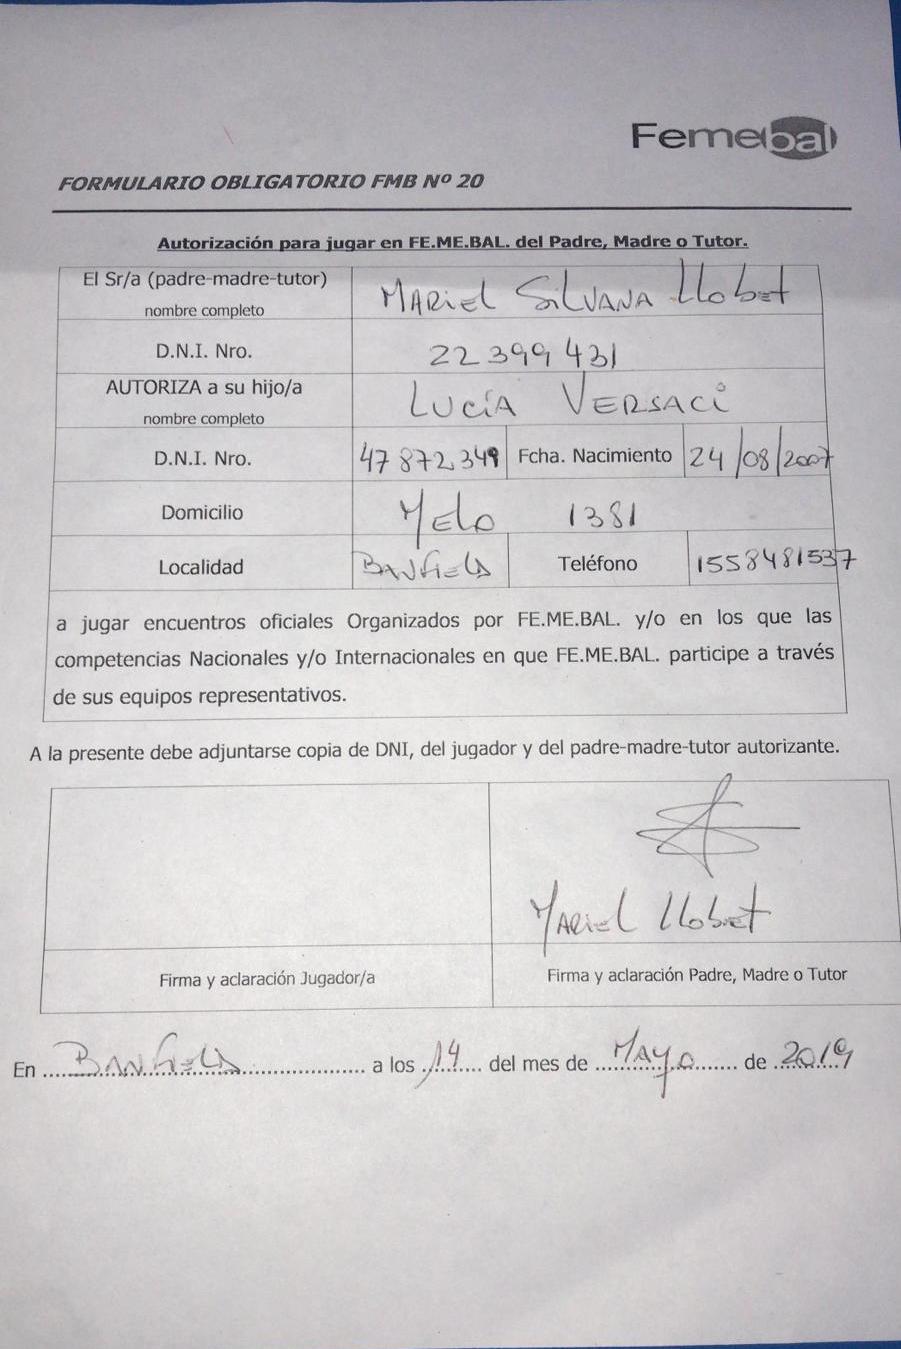 Femebal
FORMULARIO OBLIGATORIO FMB Nº 20
Autorización para jugar en FE.ME.BAL. del Padre, Madre o Tutor.
El Sr/a (padre-madre-tutor) MARIEL SILVANA LLobet
nombre completo
D.N.I. Nro. 22399431
AUTORIZA a su hijo/a LUCÍA VERSACI
nombre completo
D.N.I. Nro. 47872349 Fcha. Nacimiento 24/08/2007
Domicilio MELO 1381
Localidad BANFIELD Teléfono 1558481537
a jugar encuentros oficiales Organizados por FE.ME.BAL. y/o en los que las
competencias Nacionales y/o Internacionales en que FE.ME.BAL. participe a través
de sus equipos representativos.
A la presente debe adjuntarse copia de DNI, del jugador y del padre-madre-tutor autorizante.
MARIEL LLobet
Firma y aclaración Jugador/a Firma y aclaración Padre, Madre o Tutor
En BANFIELD a los 14 del mes de MAYO de 2019